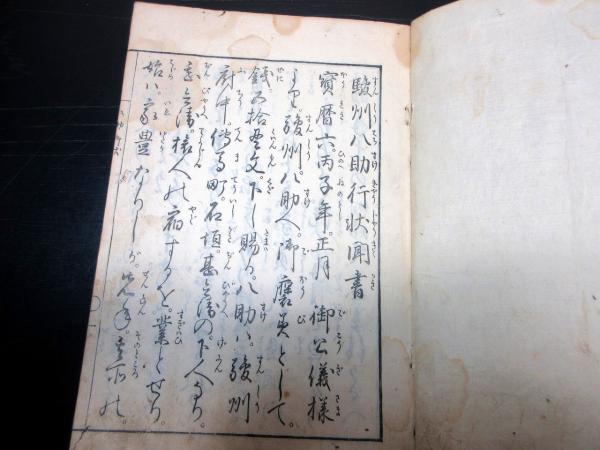 駿州八助行状聞書
宝暦六。丙子年。正月 御公儀様
より。駿州八助へ。御褒美として。
銭五拾貫文。下し賜る。八助ハ。駿州
府中。伝馬町。石垣。甚兵衛の。下人なり。
甚兵衛。旅人の宿するを。業とせり。
始ハ。家豊なりしが。